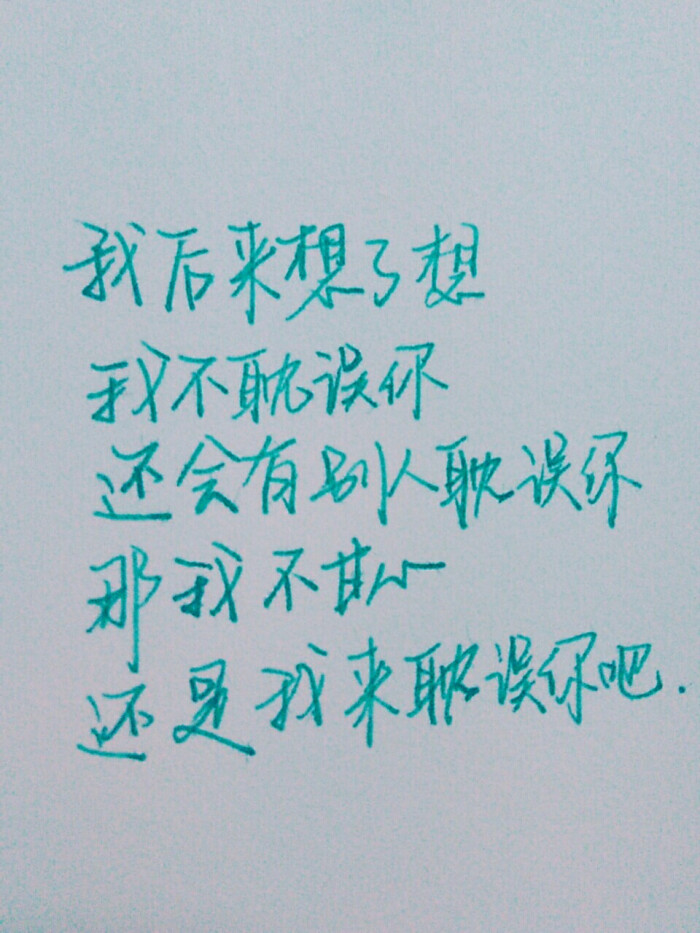 我后来想了想
我不耽误你
还会有别人耽误你
那我不甘心
还是我来耽误你吧.